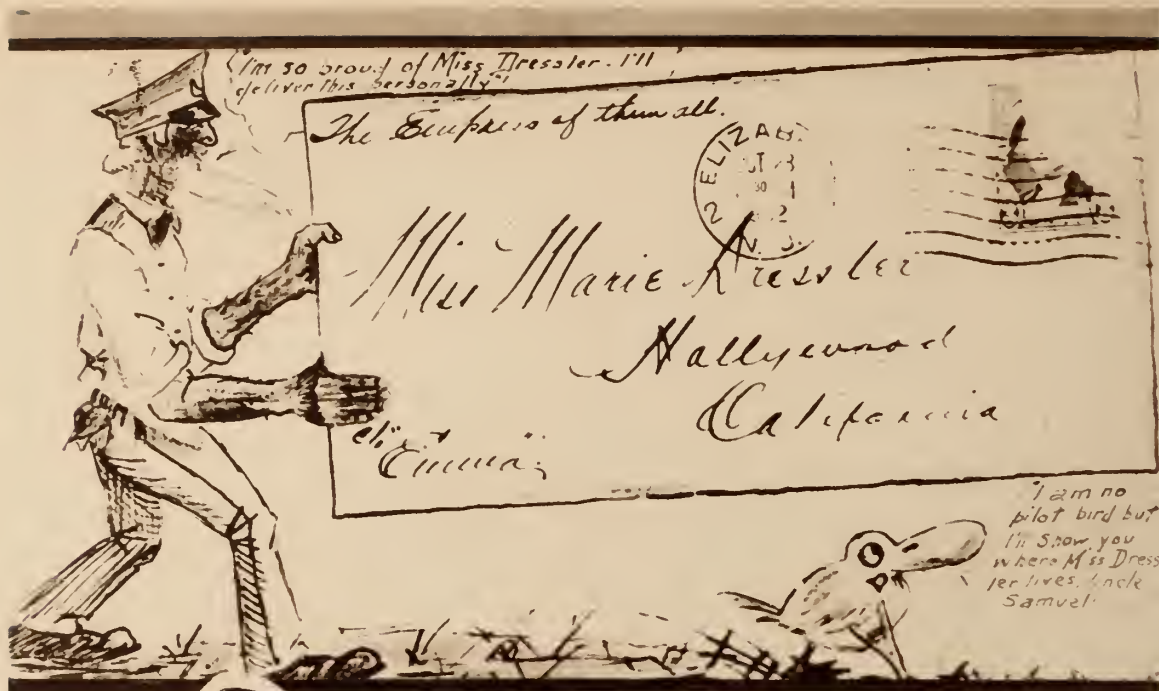 I'm so proud of Miss Dressler. I'll
deliver this personally"!
The Empress of them all.
2 ELIZAB
30
2
N. J.
Miss Marie Dressler
Hollywood
California
"Emma"
I am no
pilot bird but
I'll show you
where Miss Dress
ler lives, Uncle
Samuel